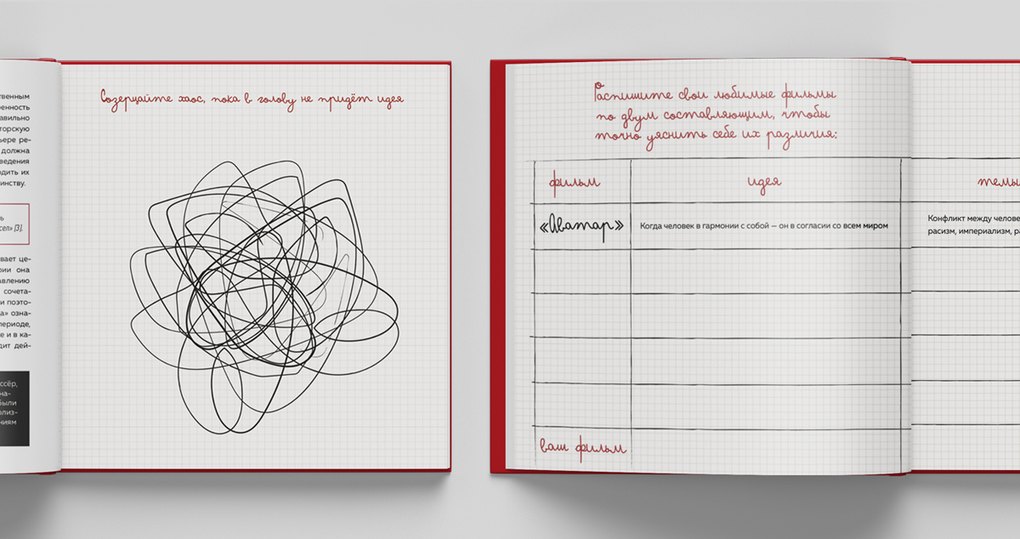 твенным
енность
авильно
торскую
ьере ре-
должна
ведения
одить их
инству.
ь
сел» [3].
вает це-
рии она
авлению
сочета-
и поэто-
а» озна-
периоде,
е и в ка-
дит дей-
ссёр,
на-
были
олиз-
ниям
Созерцайте хаос, пока в голову не придёт идея
Распишите свои любимые фильмы
по двум составляющим, чтобы
точно уяснить себе их различия:
фильм
идея
темы
«Аватар»
Когда человек в гармонии с собой — он в согласии со всем миром
Конфликт между челове
расизм, империализм, ра
ваш фильм